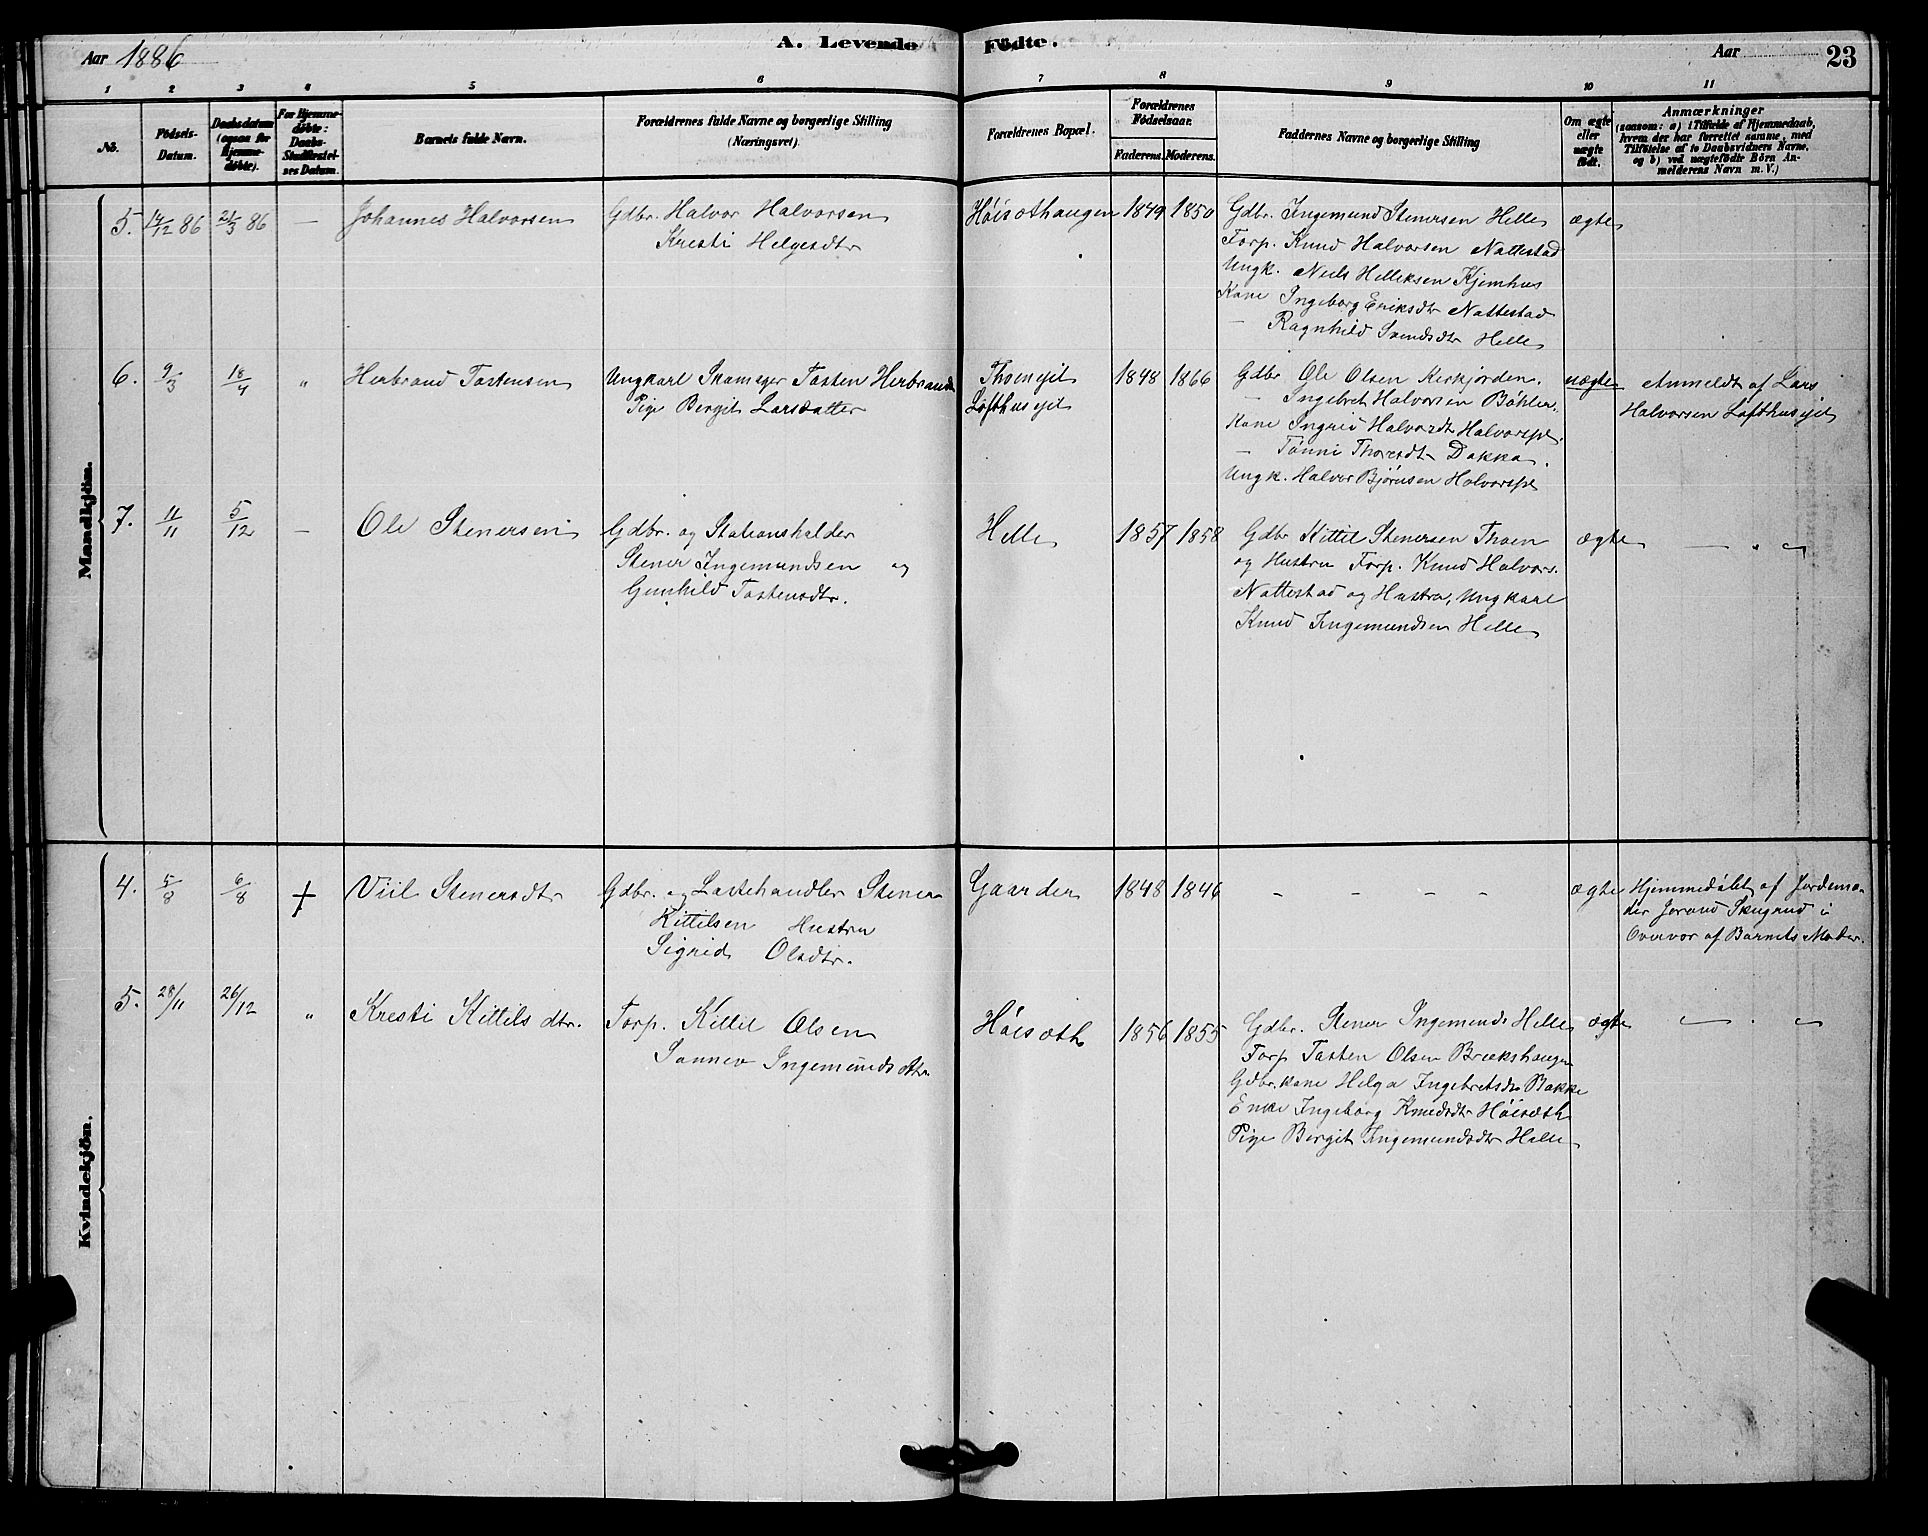 Aar 1886
A. Levende Födte.
Aar
23
1 2 3 4 5 6 7 8 9 10 11
No.
Födsels-
Datum.
Daabsdatum
(ogsaa for
Hjemme-
döbte).
For Hjemme-
döbte:
Daabs-
Stadfæstel-
ses Datum.
Barnets fulde Navn.
Forældrenes fulde Navne og borgerlige Stilling
(Næringsvei).
Forældrenes Bopæl.
Forældrenes
Födselsaar.
Faderens. Moderens.
Faddernes Navne og borgerlige Stilling
Om ægte
eller
uægte
födt.
Anmærkninger
(saasom: a) i Tilfælde af Hjemmedaab,
hvem der har forrettet samme, med
Tilföielse af to Daabsvidners Navne,
og b) ved uægtefödte Börn An-
melderens Navn m. V.)
Mandkjön.
5. 14/12 86 21/3 86 — Johannes Halvorsen
Gdbr. Halvor Halvorsen
Kresti Helgesdtr
Höisæthaugen 1849 1850
Gdbr. Ingemund Stenersen Helle
Forp. Knud Halvorsen Nattestad
Ungk. Niels Helleksen Kjemhus
Kone Ingeborg Eriksdtr Nattestad
— Ragnhild Svendsdtr Helle
ægte
6. 9/3 18/4 " Herbrand Tostensen
Ungkarl Skomager Tosten Herbrands
Pige Bergit Larsdatter
Thoenejet
Lofthusejet
1848 1866
Gdbr Ole Olsen Kirkjorden.
— Ingebret Halvorsen Böhler.
Kone Ingrid Halvorsdtr Halvorspl.
— Tönni Thoresdtr Dokka.
Ungk. Halvor Björnsen Halvorspl
uægte
Anmeldt af Lars
Halvorsen Lofthusejet
7. 11/11 5/12 — Ole Stenersen
Gdbr. og Stationsholder
Stener Ingemundsen og
Gunhild Tostensdtr.
Helle 1857 1858
Gdbr Kittil Stenersen Thoen
og Hustru Forp. Knud Halvors.
Nattestad og Hustru, Ungkarl
Knud Ingemundsen Helle
ægte — " —
Kvindekjön.
4. 5/8 6/8 † Viil Stenersdtr
Gdbr. og Lastehandler Stener
Kittilsen Hustru
Sigrid Olsdtr.
Gaarder 1848 1846 - - - -
ægte
Hjemmedöbt af Jordemo-
der Jorand Skugrud i
Overvær af Barnets Moder.
5. 28/11 26/12 " Kresti Kittilsdtr.
Forp. Kittil Olsen
Sønnev Ingemundsdtr.
Höisæth 1856 1855
Gdbr. Stener Ingemunds Helle
Forp Tosten Olsen Brækshaugen
Gdbr.kone Helga Ingebretsdtr Bakke
Enke Ingeborg Knudsdtr Höisæth
Pige Bergit Ingemundsdtr Helle
ægte — " —